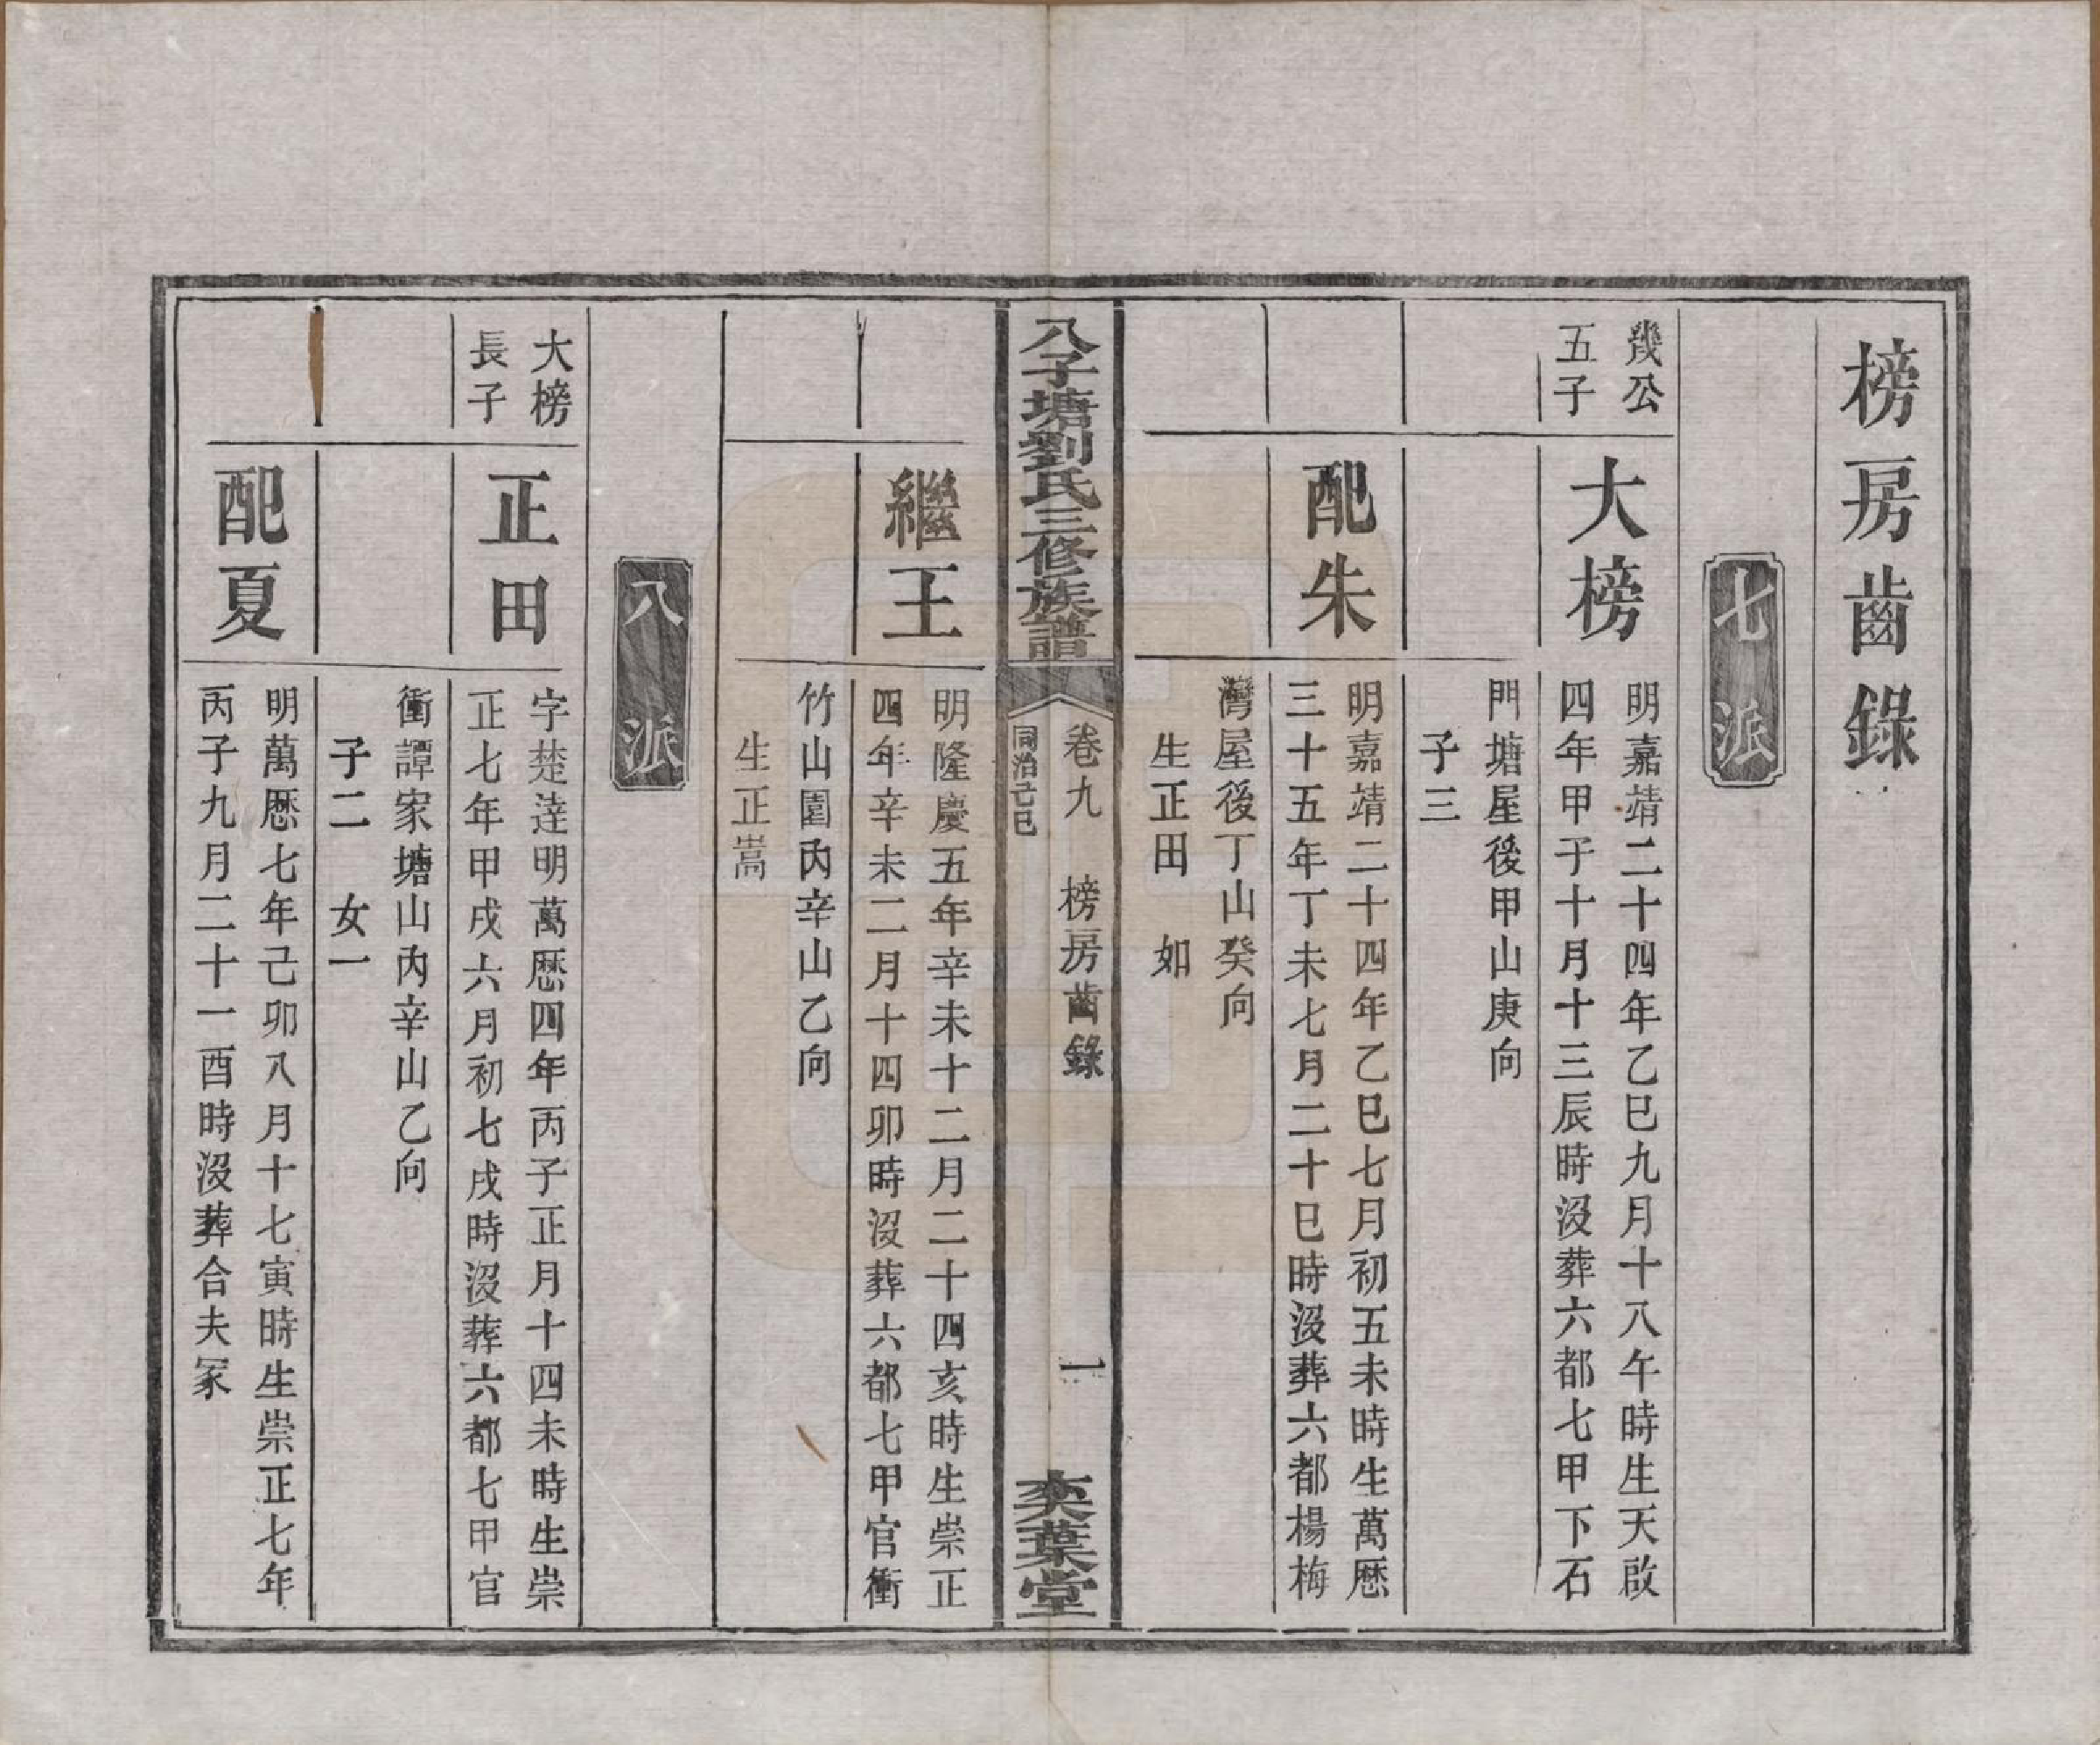 榜房齒錄
七派
幾公
五子
大榜
明嘉靖二十四年乙巳九月十八午時生天啟
四年甲子十月十三辰時沒葬六都七甲下石
門塘屋後甲山庚向
子三
配朱
明嘉靖二十四年乙巳七月初五未時生萬厯
三十五年丁未七月二十巳時沒葬六都楊梅
灣屋後丁山癸向
生正田　如
八子塘劉氏三修族譜
卷九　榜房齒錄　一
同治己巳
奕葉堂
繼王
明隆慶五年辛未十二月二十四亥時生崇正
四年辛未二月十四卯時沒葬六都七甲官衝
竹山園內辛山乙向
生正嵩
八派
大榜
長子
正田
字楚達明萬厯四年丙子正月十四未時生崇
正七年甲戌六月初七戌時沒葬六都七甲官
衝譚家塘山內辛山乙向
子二　女一
配夏
明萬厯七年己卯八月十七寅時生崇正七年
丙子九月二十一酉時沒葬合夫冢